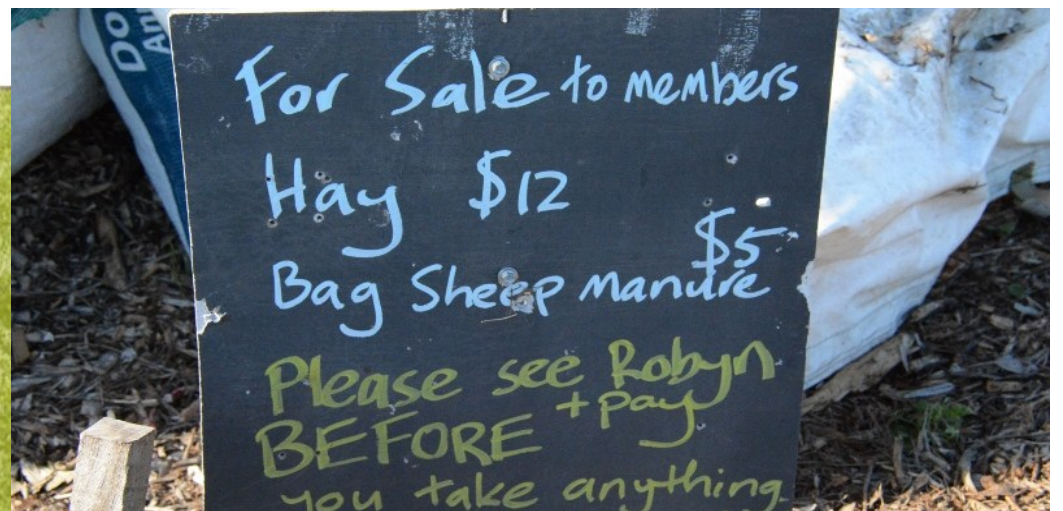 Do
An
For Sale to members
Hay $12
$5
Bag Sheep manure
Please see Robyn
+ pay
BEFORE
you take anything